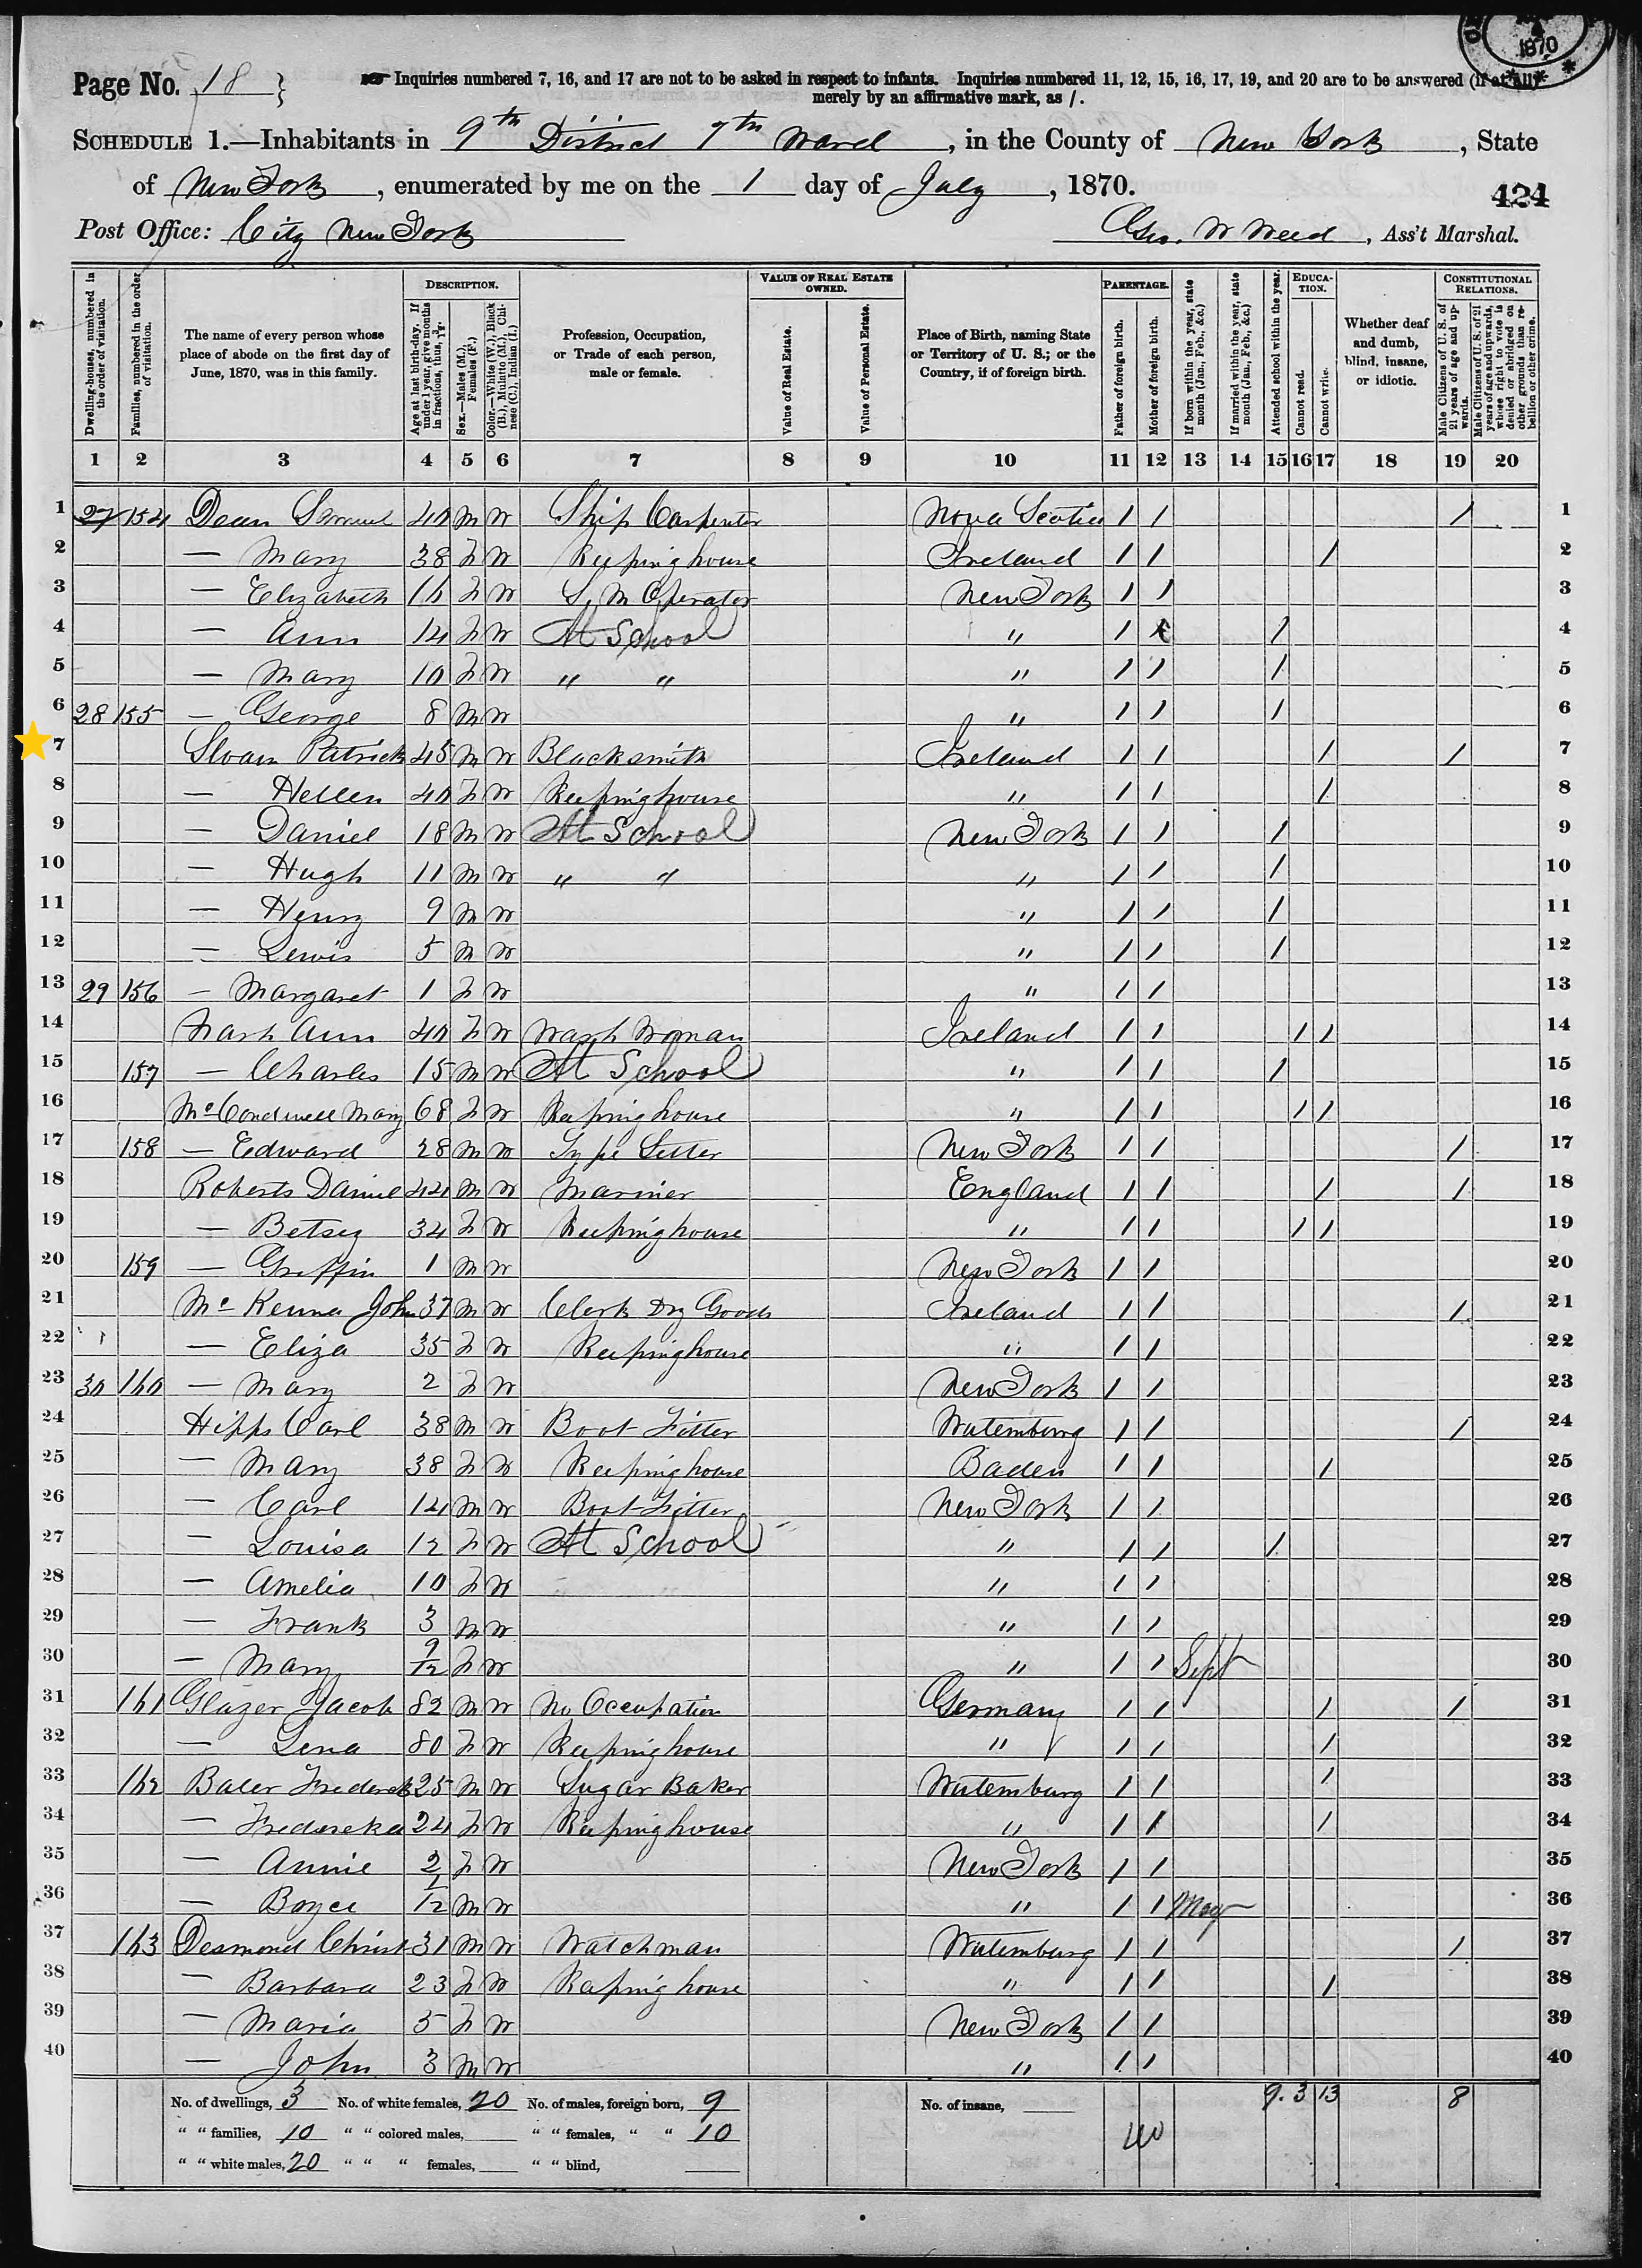 1870
Page No. 18
Inquiries numbered 7, 16, and 17 are not to be asked in respect to infants. Inquiries numbered 11, 12, 15, 16, 17, 19, and 20 are to be answered (if at all)
merely by an affirmative mark, as /.
SCHEDULE 1.—Inhabitants in 9th District 7th Ward, in the County of New York, State
of New York, enumerated by me on the 1 day of July, 1870.
424
Post Office: City New York Geo. W Weed, Ass't Marshal.
DESCRIPTION. VALUE OF REAL ESTATE OWNED. PARENTAGE. EDUCATION. CONSTITUTIONAL RELATIONS.
Dwelling-houses, numbered in the order of visitation.
Families, numbered in the order of visitation.
The name of every person whose place of abode on the first day of June, 1870, was in this family.
Age at last birth-day. If under 1 year, give months in fractions, thus, 3/12.
Sex.—Males (M.), Females (F.)
Color.—White (W.), Black (B.), Mulatto (M.), Chinese (C.), Indian (I.)
Profession, Occupation, or Trade of each person, male or female.
Value of Real Estate.
Value of Personal Estate.
Place of Birth, naming State or Territory of U. S.; or the Country, if of foreign birth.
Father of foreign birth.
Mother of foreign birth.
If born within the year, state month (Jan., Feb., &c.)
If married within the year, state month (Jan., Feb., &c.)
Attended school within the year.
Cannot read.
Cannot write.
Whether deaf and dumb, blind, insane, or idiotic.
Male Citizens of U. S. of 21 years of age and upwards.
Male Citizens of U. S. of 21 years of age and upwards, whose right to vote is denied or abridged on other grounds than rebellion or other crime.
1 2 3 4 5 6 7 8 9 10 11 12 13 14 15 16 17 18 19 20
1 27 154 Dean Samuel 40 M W Ship Carpenter Nova Scotia / / / 1
2 — Mary 38 F W Keeping house Ireland / / / 2
3 — Elizabeth 16 F W S, M Operator New York / / 3
4 — Ann 14 F W At School " / / / 4
5 — Mary 10 F W " " " / / / 5
6 28 155 — George 8 M W " / / / 6
7 Sloan Patrick 45 M W Blacksmith Ireland / / / / 7
8 — Hellen 40 F W Keeping house " / / / 8
9 — Daniel 18 M W At School New York / / / 9
10 — Hugh 11 M W " " " / / / 10
11 — Henry 9 M W " / / / 11
12 — Lewis 5 M W " / / / 12
13 29 156 — Margaret 1 F W " / / 13
14 Ann 40 F W Wash Woman Ireland / / / / 14
15 157 — Charles 15 M W At School " / / / 15
16 Mary 68 F W Keeping house " / / / / 16
17 158 — Edward 28 M W Type Setter New York / / / 17
18 Roberts Daniel 44 M W Mariner England / / / / 18
19 — Betsey 34 F W Keeping house " / / / / 19
20 159 — Griffin 1 M W New York / / 20
21 Mc Kenna John 37 M W Clerk Dry Goods Ireland / / / 21
22 — Eliza 35 F W Keeping house " / / 22
23 30 160 — Mary 2 F W New York / / 23
24 Hipps Carl 38 M W Boot Fitter Wutemburg / / / 24
25 — Mary 38 F W Keeping house Baden / / / 25
26 — Carl 14 M W Boot Fitter New York / / 26
27 — Louisa 12 F W At School " / / / 27
28 — Amelia 10 F W " / / 28
29 — Frank 3 M W " / / 29
30 — Mary 9/12 F W " / / Sept 30
31 161 Glazer Jacob 82 M W No Occupation Germany / / / / 31
32 — Lena 80 F W Keeping house " / / / 32
33 162 Baler Frederick 25 M W Sugar Baker Wutemburg / / / 33
34 — Fredereka 24 F W Keeping house " / / / 34
35 — Annie 2 F W New York / / 35
36 — 1/12 M W " / / May 36
37 163 Desmond Christ 31 M W Watchman Wutemburg / / / 37
38 — Barbara 23 F W Keeping house " / / / 38
39 — Maria 5 F W New York / / 39
40 — John 3 M W " / / 40
No. of dwellings, 3 No. of white females, 20 No. of males, foreign born, 9 No. of insane, 9. 3 13 8
" " families, 10 " " colored males, " " females, " " 10 40
" " white males, 20 " " " females, " " blind,